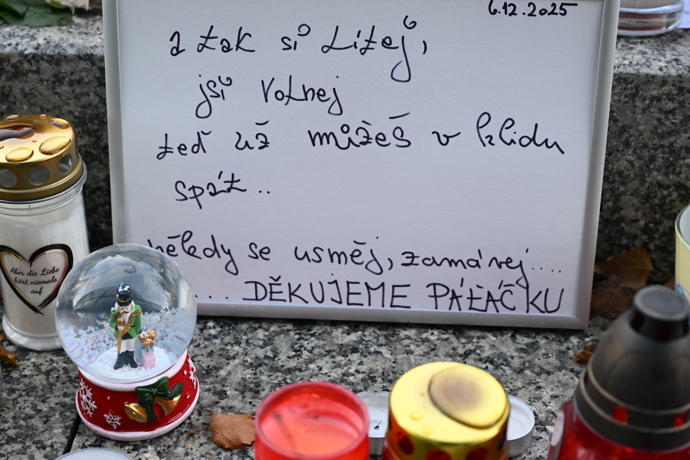 6.12.2025
a tak si Lítej,
jsi volnej
teď už můžeš v klidu
spát..
někdy se usměj, zamávej....
... DĚKUJEME PÁŤÁČKU
Aber die Liebe
hört niemals
auf